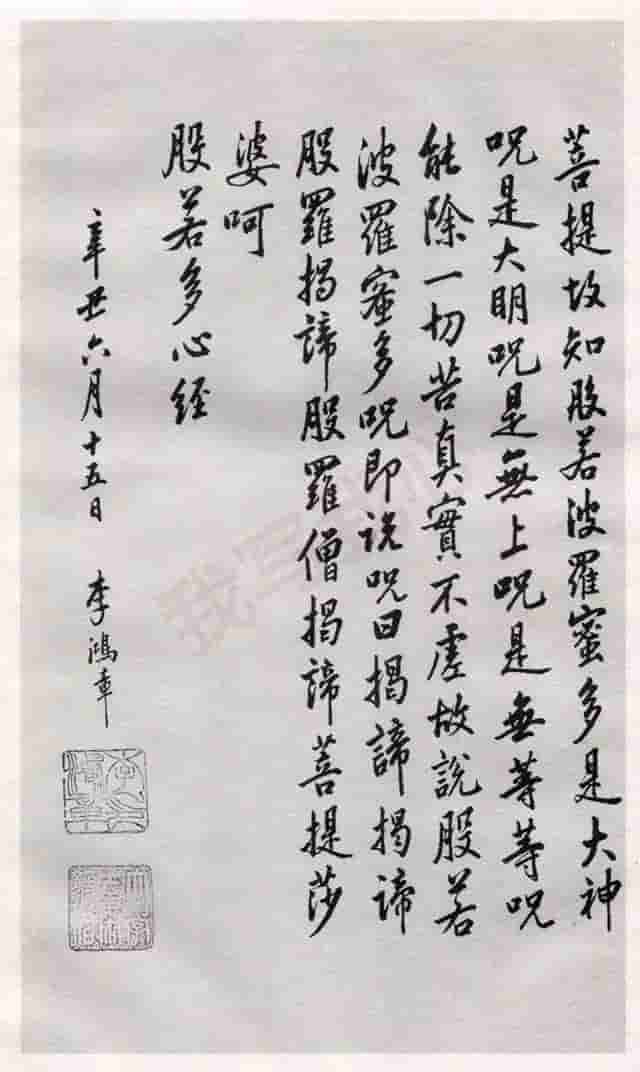 菩提故知般若波羅蜜多是大神
呪是大明呪是無上呪是無等等呪
能除一切苦真實不虛故說般若
波羅蜜多呪即說呪曰揭諦揭諦
般羅揭諦般羅僧揭諦菩提莎
婆呵
般若多心経
辛丑六月十五日 李鴻章